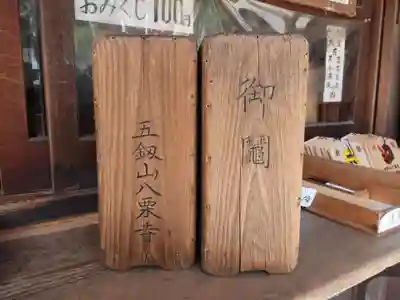 おみくじ 100円
五劔山八栗寺
御鬮